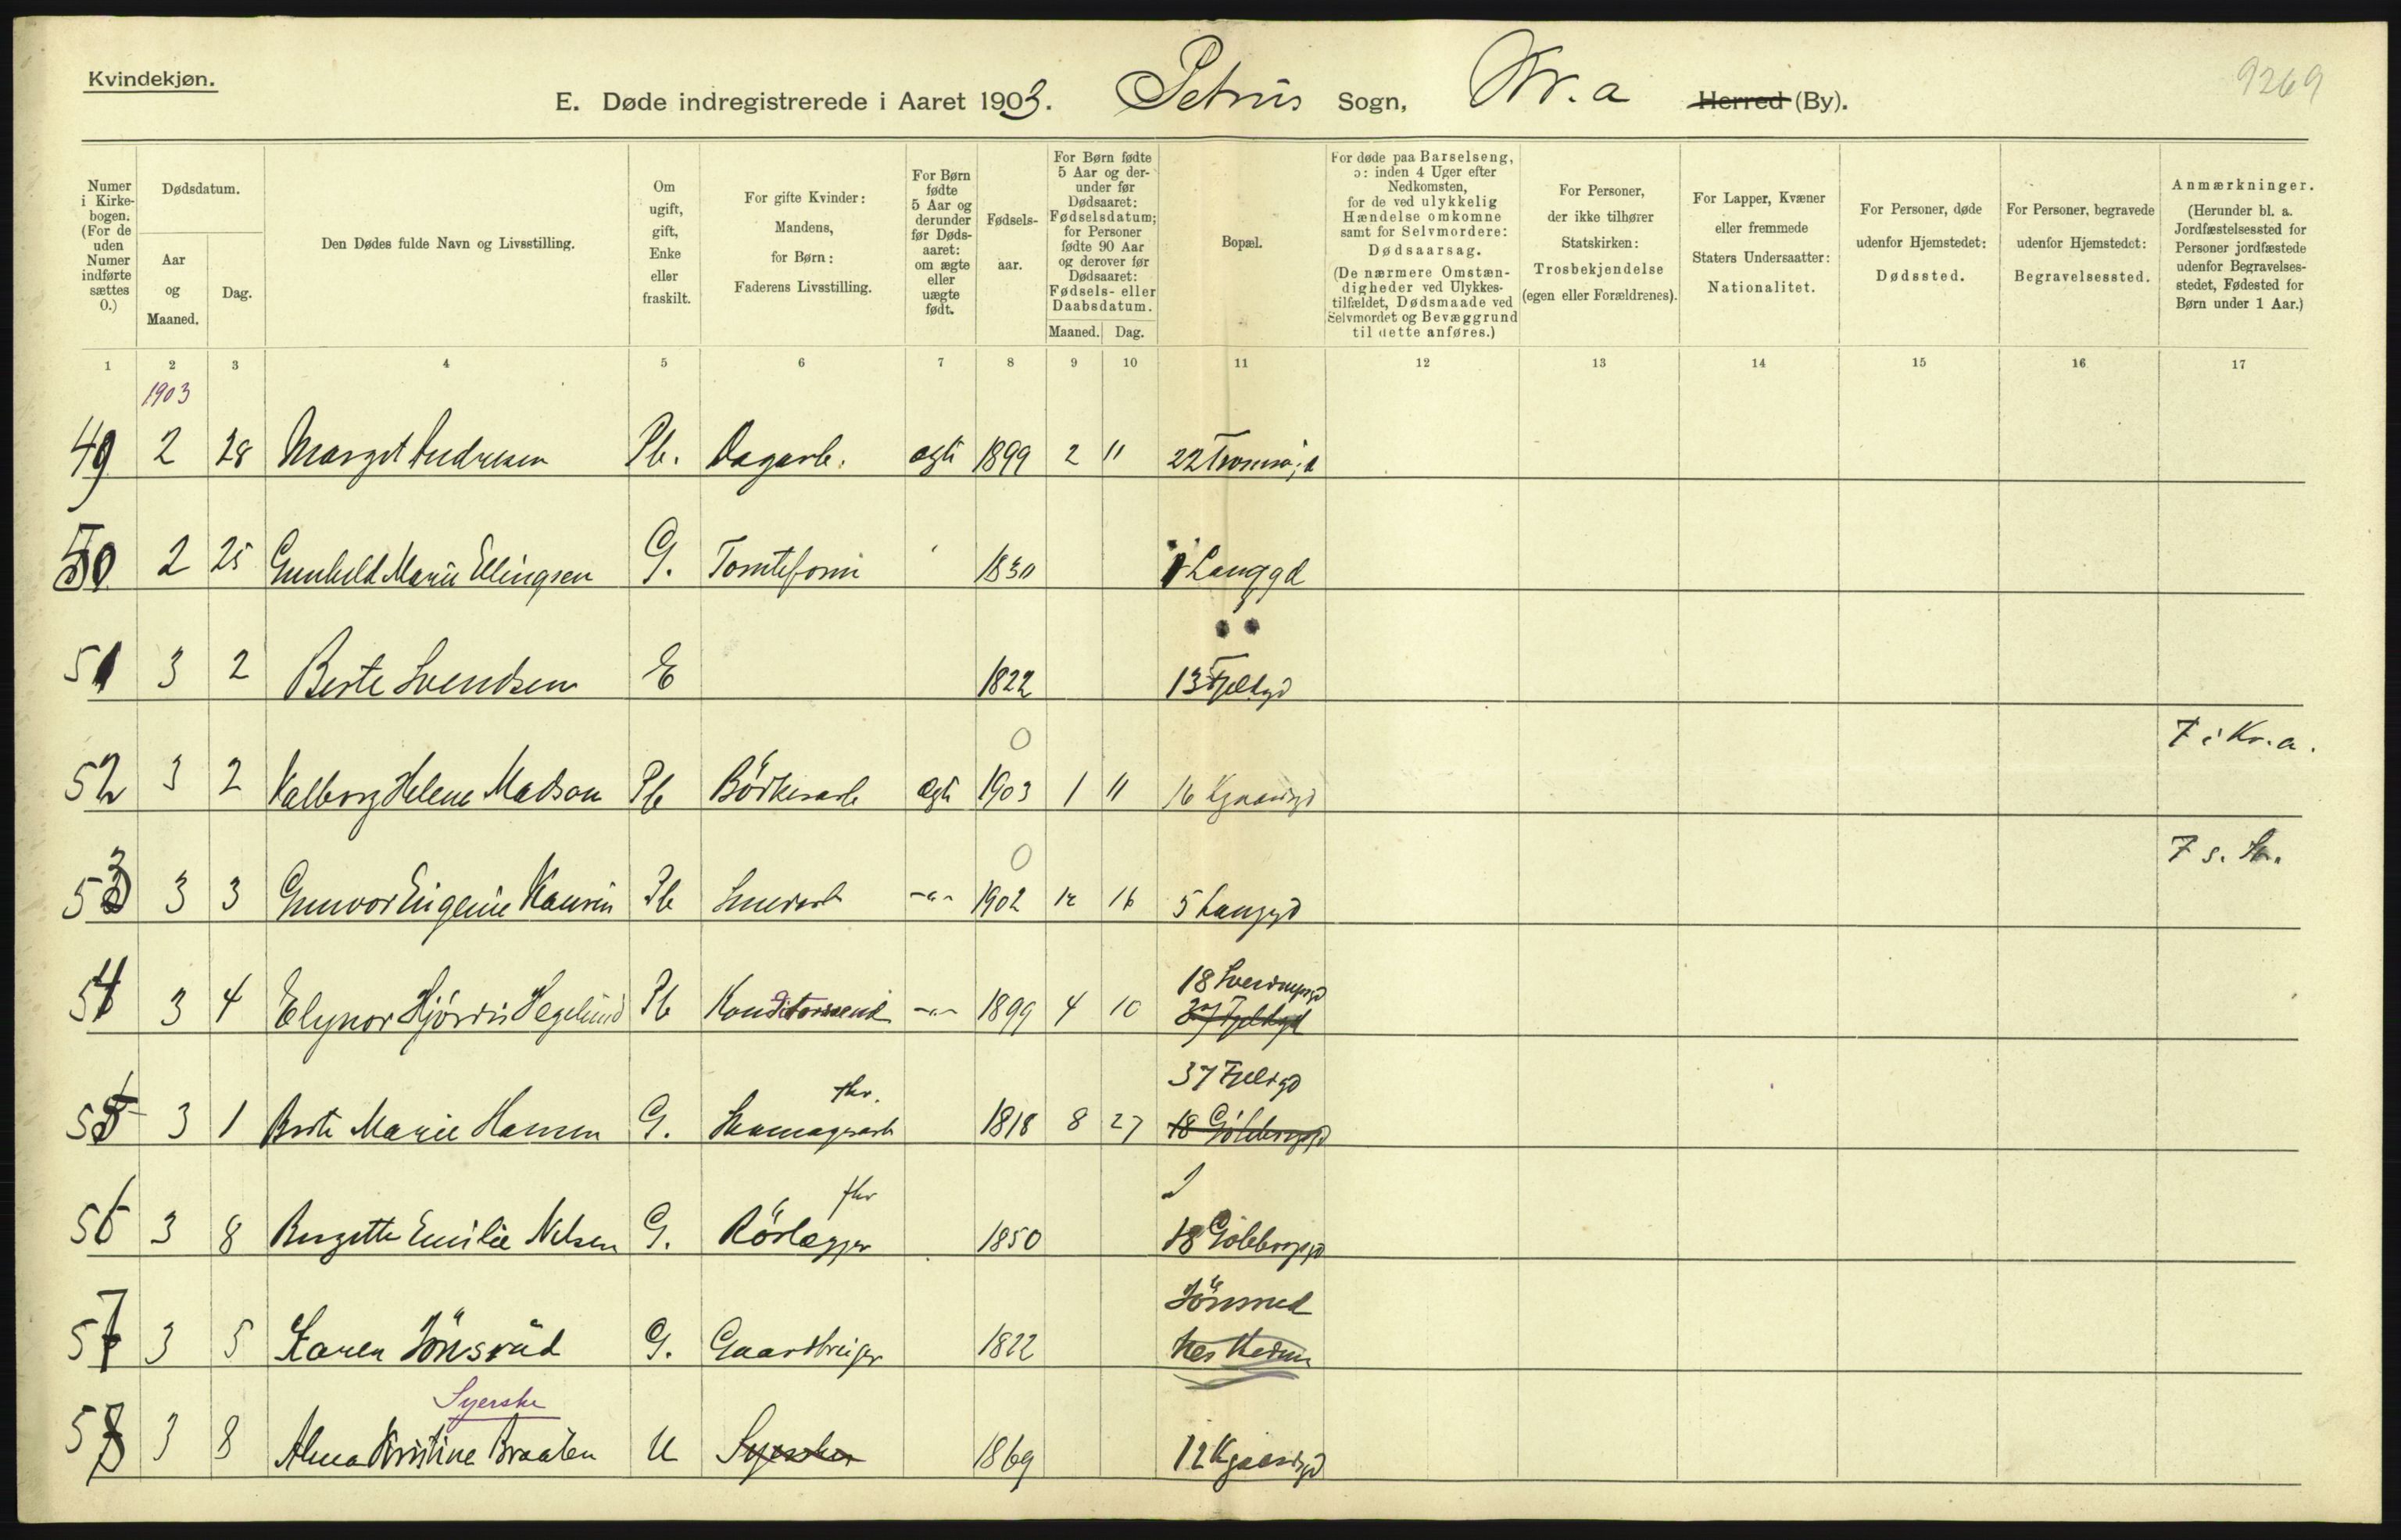 Kvindekjøn.
9269
E. Døde indregistrerede i Aaret 1903. Petrus Sogn, Kr.a Herred (By).
Numer i Kirkebogen. (For de uden Numer indførte sættes 0.)
Dødsdatum.
Aar og Maaned.
Dag.
Den Dødes fulde Navn og Livsstilling.
Om ugift, gift, Enke eller fraskilt.
For gifte Kvinder: Mandens, for Børn: Faderens Livsstilling.
For Børn fødte 5 Aar og derunder før Dødsaaret: om ægte eller uægte født.
Fødselsaar.
For Børn fødte 5 Aar og derunder før Dødsaaret: Fødselsdatum; for Personer fødte 90 Aar og derover før Dødsaaret: Fødsels- eller Daabsdatum.
Maaned. Dag.
Bopæl.
For døde paa Barselseng, ɔ: inden 4 Uger efter Nedkomsten, for de ved ulykkelig Hændelse omkomne samt for Selvmordere: Dødsaarsag. (De nærmere Omstændigheder ved Ulykkestilfældet, Dødsmaade ved Selvmordet og Bevæggrund til dette anføres.)
For Personer, der ikke tilhører Statskirken: Trosbekjendelse (egen eller Forældrenes).
For Lapper, Kvæner eller fremmede Staters Undersaatter: Nationalitet.
For Personer, døde udenfor Hjemstedet: Dødssted.
For Personer, begravede udenfor Hjemstedet: Begravelsessted.
Anmærkninger. (Herunder bl. a. Jordfæstelsessted for Personer jordfæstede udenfor Begravelsesstedet, Fødested for Børn under 1 Aar.)
1 2 3 4 5 6 7 8 9 10 11 12 13 14 15 16 17
1903
49 2 28 Margit Andresen Pb. Dagarb. ægte 1899 2 11
50 2 25 Gunhild Marie Ellingsen G. Tomteform 1830 1 Langgd
51 3 2 Berte Svendsen E 1822 13 Fjeldgd
0 7 i Kr.a.
52 3 2 Valborg Helene Madsen Pb Börkerarb ægte 1903 1 11 16
0
53 3 3 Gunvor Eugenie Hansen Pb 1902 12 16 5 Langgd
18 Sverdrupsgd
54 3 4 Elynor Hjördis Hegelund Pb Konditorsvend 1899 4 10 37 Fjeldgd
fhv. 37 Fjeldgd
55 3 1 Berte Marie Hansen G. 1818 8 27 18 Göteborggd
fhv
56 3 8 Birgitte Emilie Nilsen G. Rörlægger 1850 18 Göteborggd
Jönsrud
57 3 5 Karen Jönsrud G. Gaardbruger 1822 Nes Hedm
Syerske
58 3 8 Alma Kristine Braaten U Syerske 1869 12